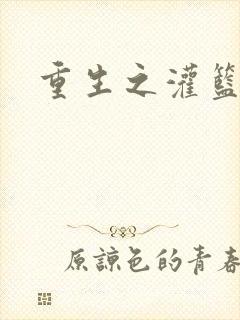 重生之灌籃
原諒色的青春